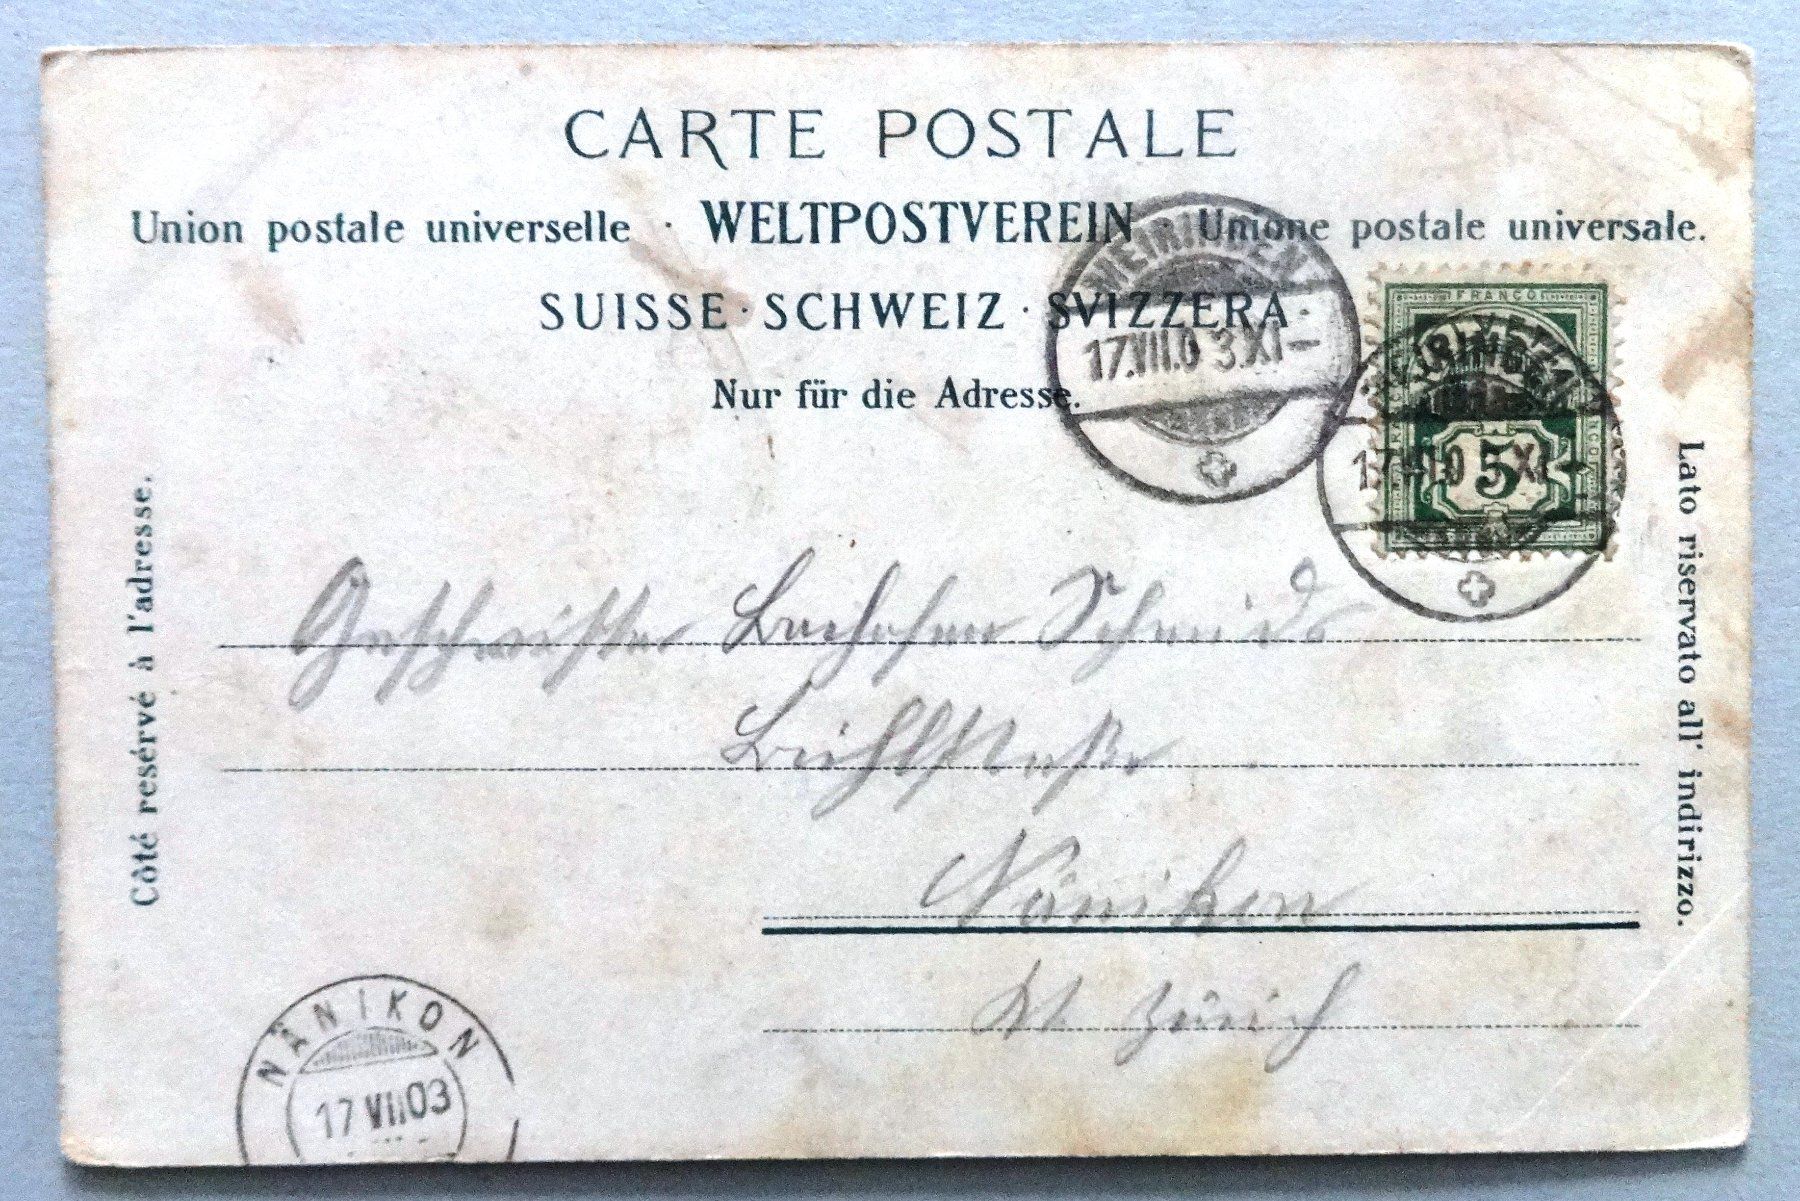 CARTE POSTALE
Union postale universelle · WELTPOSTVEREIN · Unione postale universale.
SUISSE · SCHWEIZ · SVIZZERA
Nur für die Adresse.
MEIRINGEN
17.VII.03.XI–
FRANCO
5
MEIRINGEN
17.VII.0 XI–
Côté resérvé à l'adresse.
Lato riservato all' indirizzo.
Geschwister Schmid
Nänikon
Kt. Zürich
NÄNIKON
17 VII 03